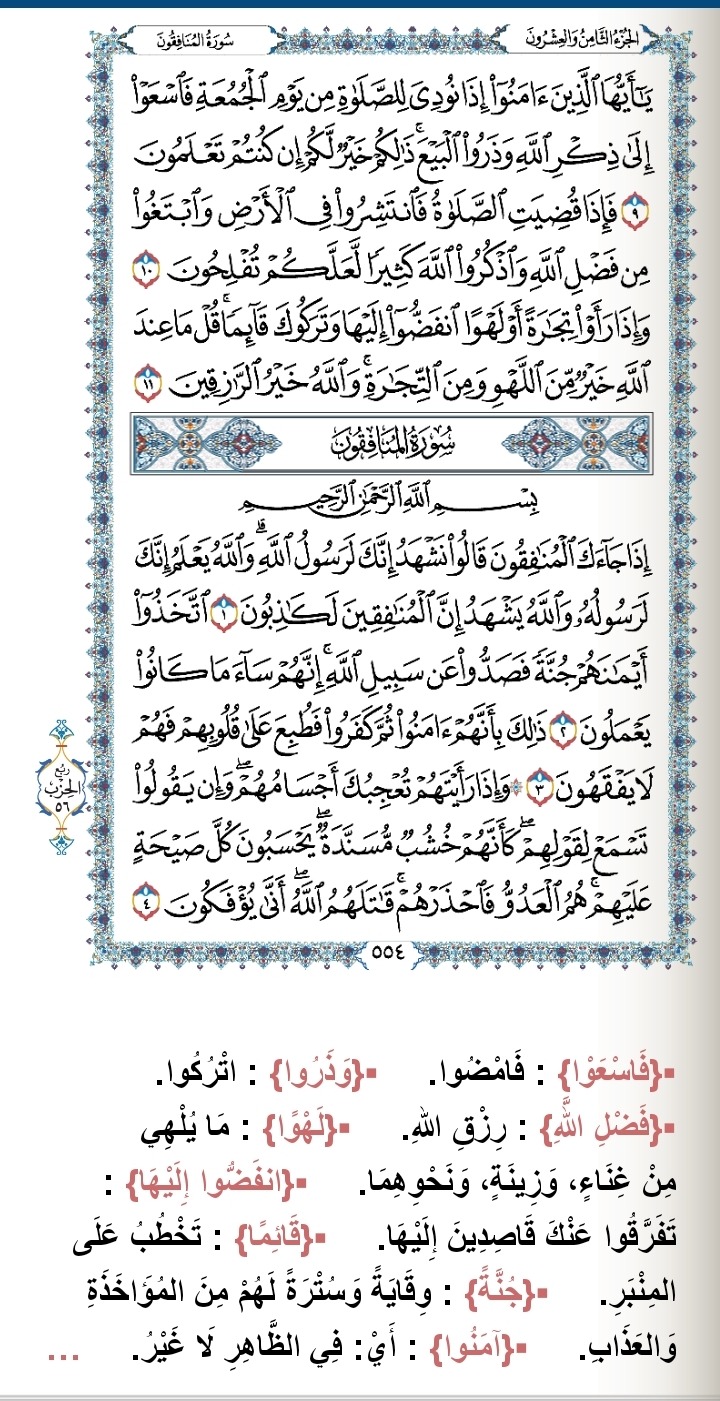 الجُزْءُ الثَّامِنُ وَالعِشْرُونَ
سُورَةُ المُنَافِقُونَ
يَـٰٓأَيُّهَا ٱلَّذِينَ ءَامَنُوٓا۟ إِذَا نُودِىَ لِلصَّلَوٰةِ مِن يَوْمِ ٱلْجُمُعَةِ فَٱسْعَوْا۟
إِلَىٰ ذِكْرِ ٱللَّهِ وَذَرُوا۟ ٱلْبَيْعَ ۚ ذَٰلِكُمْ خَيْرٌ لَّكُمْ إِن كُنتُمْ تَعْلَمُونَ
٩ فَإِذَا قُضِيَتِ ٱلصَّلَوٰةُ فَٱنتَشِرُوا۟ فِى ٱلْأَرْضِ وَٱبْتَغُوا۟
مِن فَضْلِ ٱللَّهِ وَٱذْكُرُوا۟ ٱللَّهَ كَثِيرًا لَّعَلَّكُمْ تُفْلِحُونَ ١٠
وَإِذَا رَأَوْا۟ تِجَـٰرَةً أَوْ لَهْوًا ٱنفَضُّوٓا۟ إِلَيْهَا وَتَرَكُوكَ قَآئِمًا ۚ قُلْ مَا عِندَ
ٱللَّهِ خَيْرٌ مِّنَ ٱللَّهْوِ وَمِنَ ٱلتِّجَـٰرَةِ ۚ وَٱللَّهُ خَيْرُ ٱلرَّٰزِقِينَ ١١
سُورَةُ المُنَافِقُونَ
بِسْمِ ٱللَّهِ ٱلرَّحْمَـٰنِ ٱلرَّحِيمِ
إِذَا جَآءَكَ ٱلْمُنَـٰفِقُونَ قَالُوا۟ نَشْهَدُ إِنَّكَ لَرَسُولُ ٱللَّهِ ۗ وَٱللَّهُ يَعْلَمُ إِنَّكَ
لَرَسُولُهُۥ وَٱللَّهُ يَشْهَدُ إِنَّ ٱلْمُنَـٰفِقِينَ لَكَـٰذِبُونَ ١ ٱتَّخَذُوٓا۟
أَيْمَـٰنَهُمْ جُنَّةً فَصَدُّوا۟ عَن سَبِيلِ ٱللَّهِ ۚ إِنَّهُمْ سَآءَ مَا كَانُوا۟
يَعْمَلُونَ ٢ ذَٰلِكَ بِأَنَّهُمْ ءَامَنُوا۟ ثُمَّ كَفَرُوا۟ فَطُبِعَ عَلَىٰ قُلُوبِهِمْ فَهُمْ
لَا يَفْقَهُونَ ٣ ۞ وَإِذَا رَأَيْتَهُمْ تُعْجِبُكَ أَجْسَامُهُمْ ۖ وَإِن يَقُولُوا۟
تَسْمَعْ لِقَوْلِهِمْ ۖ كَأَنَّهُمْ خُشُبٌ مُّسَنَّدَةٌ ۖ يَحْسَبُونَ كُلَّ صَيْحَةٍ
عَلَيْهِمْ ۚ هُمُ ٱلْعَدُوُّ فَٱحْذَرْهُمْ ۚ قَـٰتَلَهُمُ ٱللَّهُ ۖ أَنَّىٰ يُؤْفَكُونَ ٤
رُبْعُ
الحِزْبِ
٥٦
٥٥٤
▪{فَاسْعَوْا} : فَامْضُوا. ▪{وَذَرُوا} : اتْرُكُوا.
▪{فَضْلِ اللَّهِ} : رِزْقِ اللهِ. ▪{لَهْوًا} : مَا يُلْهِي
مِنْ غِنَاءٍ، وَزِينَةٍ، وَنَحْوِهِمَا. ▪{انفَضُّوا إِلَيْهَا} :
تَفَرَّقُوا عَنْكَ قَاصِدِينَ إِلَيْهَا. ▪{قَائِمًا} : تَخْطُبُ عَلَى
المِنْبَرِ. ▪{جُنَّةً} : وِقَايَةً وَسُتْرَةً لَهُمْ مِنَ المُؤَاخَذَةِ
وَالعَذَابِ. ▪{آمَنُوا} : أَيْ: فِي الظَّاهِرِ لَا غَيْرُ. ...